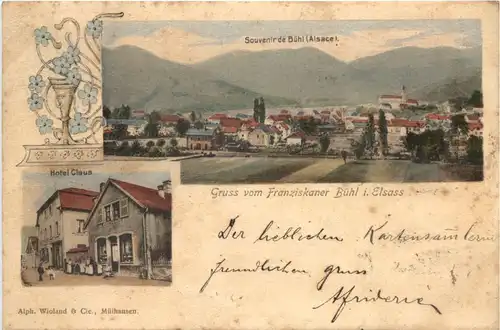 Souvenir de Bühl (Alsace).
Hotel Claus
Gruss vom Franziskaner Bühl i. Elsass
Der lieblichen Kartensammlerin
freundlichen gruss
Alph. Wioland & Cie., Mülhausen.